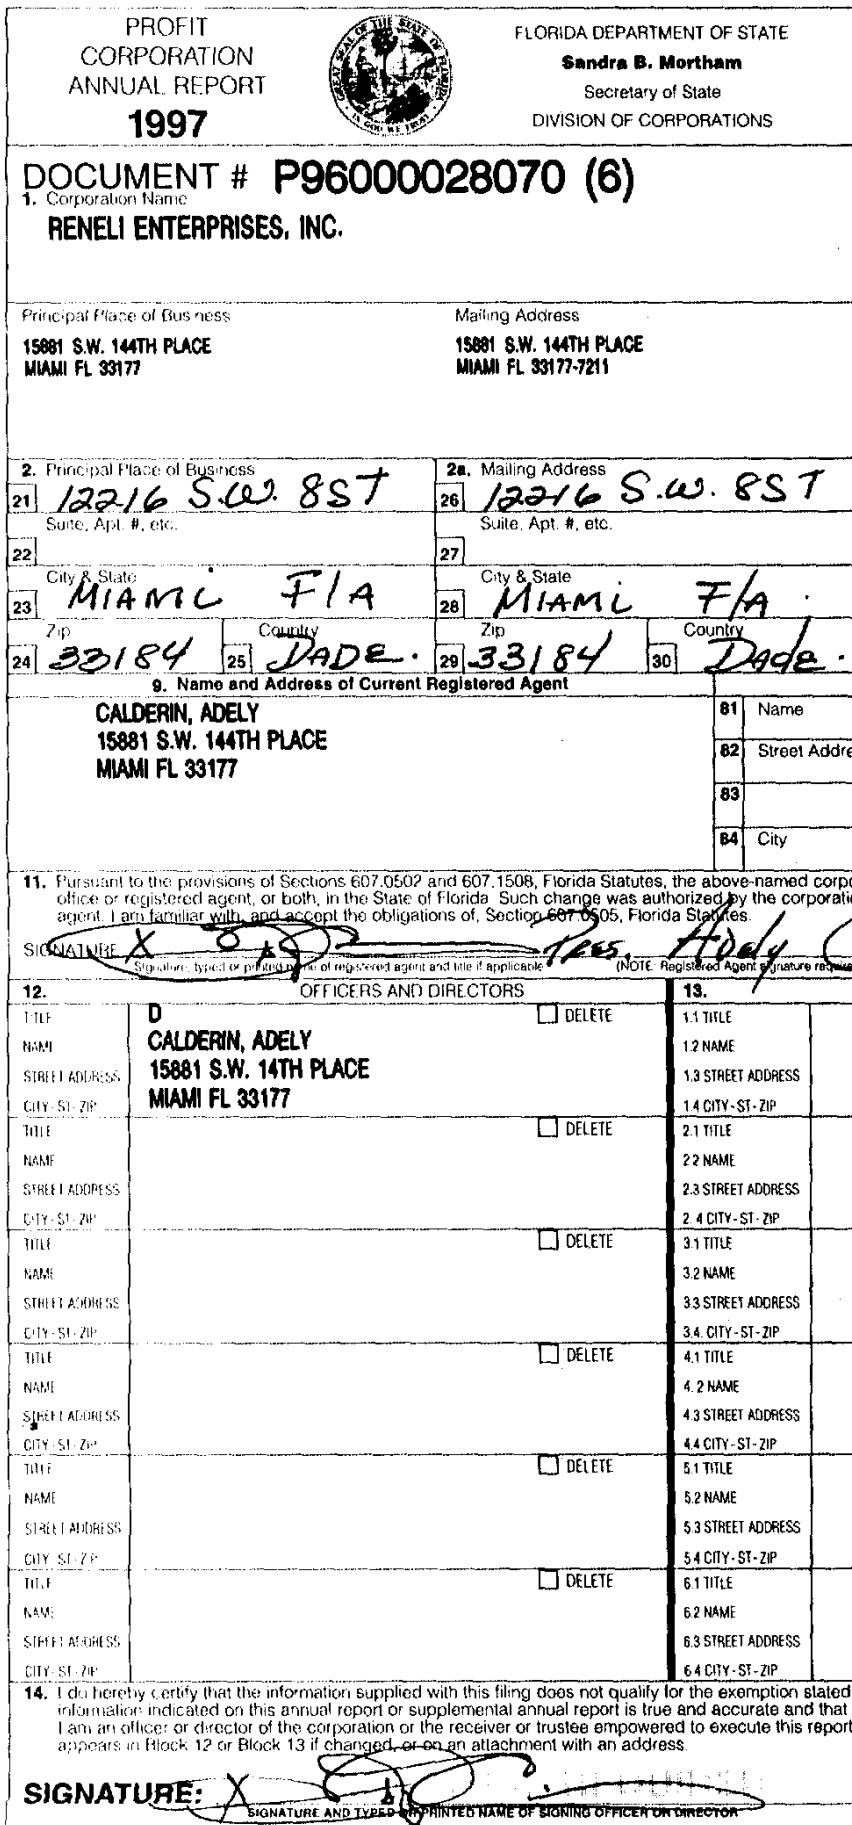 PROFIT
CORPORATION
ANNUAL REPORT
1997
GREAT SEAL OF THE STATE OF FLORIDA
IN GOD WE TRUST
FLORIDA DEPARTMENT OF STATE
Sandra B. Mortham
Secretary of State
DIVISION OF CORPORATIONS
DOCUMENT # P96000028070 (6)
1. Corporation Name
RENELI ENTERPRISES, INC.
Principal Place of Business
15881 S.W. 144TH PLACE
MIAMI FL 33177
Mailing Address
15881 S.W. 144TH PLACE
MIAMI FL 33177-7211
2. Principal Place of Business
21 12216 S.W. 8ST
Suite, Apt. #, etc.
22
City & State
23 MIAMI F/A
Zip
24 33184
Country
25 DADE.
2a. Mailing Address
26 12216 S.W. 8ST
Suite, Apt. #, etc.
27
City & State
28 MIAMI F/A.
Zip
29 33184
Country
30 Dade.
9. Name and Address of Current Registered Agent
CALDERIN, ADELY
15881 S.W. 144TH PLACE
MIAMI FL 33177
81 Name
82 Street Addre
83
84 City
11. Pursuant to the provisions of Sections 607.0502 and 607.1508, Florida Statutes, the above-named corpo
office or registered agent, or both, in the State of Florida. Such change was authorized by the corporati
agent. I am familiar with, and accept the obligations of, Section 607.0505, Florida Statutes.
SIGNATURE X Pres. Adely
Signature, typed or printed name of registered agent and title if applicable (NOTE: Registered Agent signature require
12. OFFICERS AND DIRECTORS
TITLE D DELETE
NAME CALDERIN, ADELY
STREET ADDRESS 15881 S.W. 14TH PLACE
CITY-ST-ZIP MIAMI FL 33177
TITLE DELETE
NAME
STREET ADDRESS
CITY-ST-ZIP
TITLE DELETE
NAME
STREET ADDRESS
CITY-ST-ZIP
TITLE DELETE
NAME
STREET ADDRESS
CITY-ST-ZIP
TITLE DELETE
NAME
STREET ADDRESS
CITY-ST-ZIP
TITLE DELETE
NAME
STREET ADDRESS
CITY-ST-ZIP
13.
1.1 TITLE
1.2 NAME
1.3 STREET ADDRESS
1.4 CITY-ST-ZIP
2.1 TITLE
2.2 NAME
2.3 STREET ADDRESS
2.4 CITY-ST-ZIP
3.1 TITLE
3.2 NAME
3.3 STREET ADDRESS
3.4. CITY-ST-ZIP
4.1 TITLE
4.2 NAME
4.3 STREET ADDRESS
4.4 CITY-ST-ZIP
5.1 TITLE
5.2 NAME
5.3 STREET ADDRESS
5.4 CITY-ST-ZIP
6.1 TITLE
6.2 NAME
6.3 STREET ADDRESS
6.4 CITY-ST-ZIP
14. I do hereby certify that the information supplied with this filing does not qualify for the exemption stated
information indicated on this annual report or supplemental annual report is true and accurate and that
I am an officer or director of the corporation or the receiver or trustee empowered to execute this report
appears in Block 12 or Block 13 if changed, or on an attachment with an address.
SIGNATURE: X
SIGNATURE AND TYPED OR PRINTED NAME OF SIGNING OFFICER OR DIRECTOR